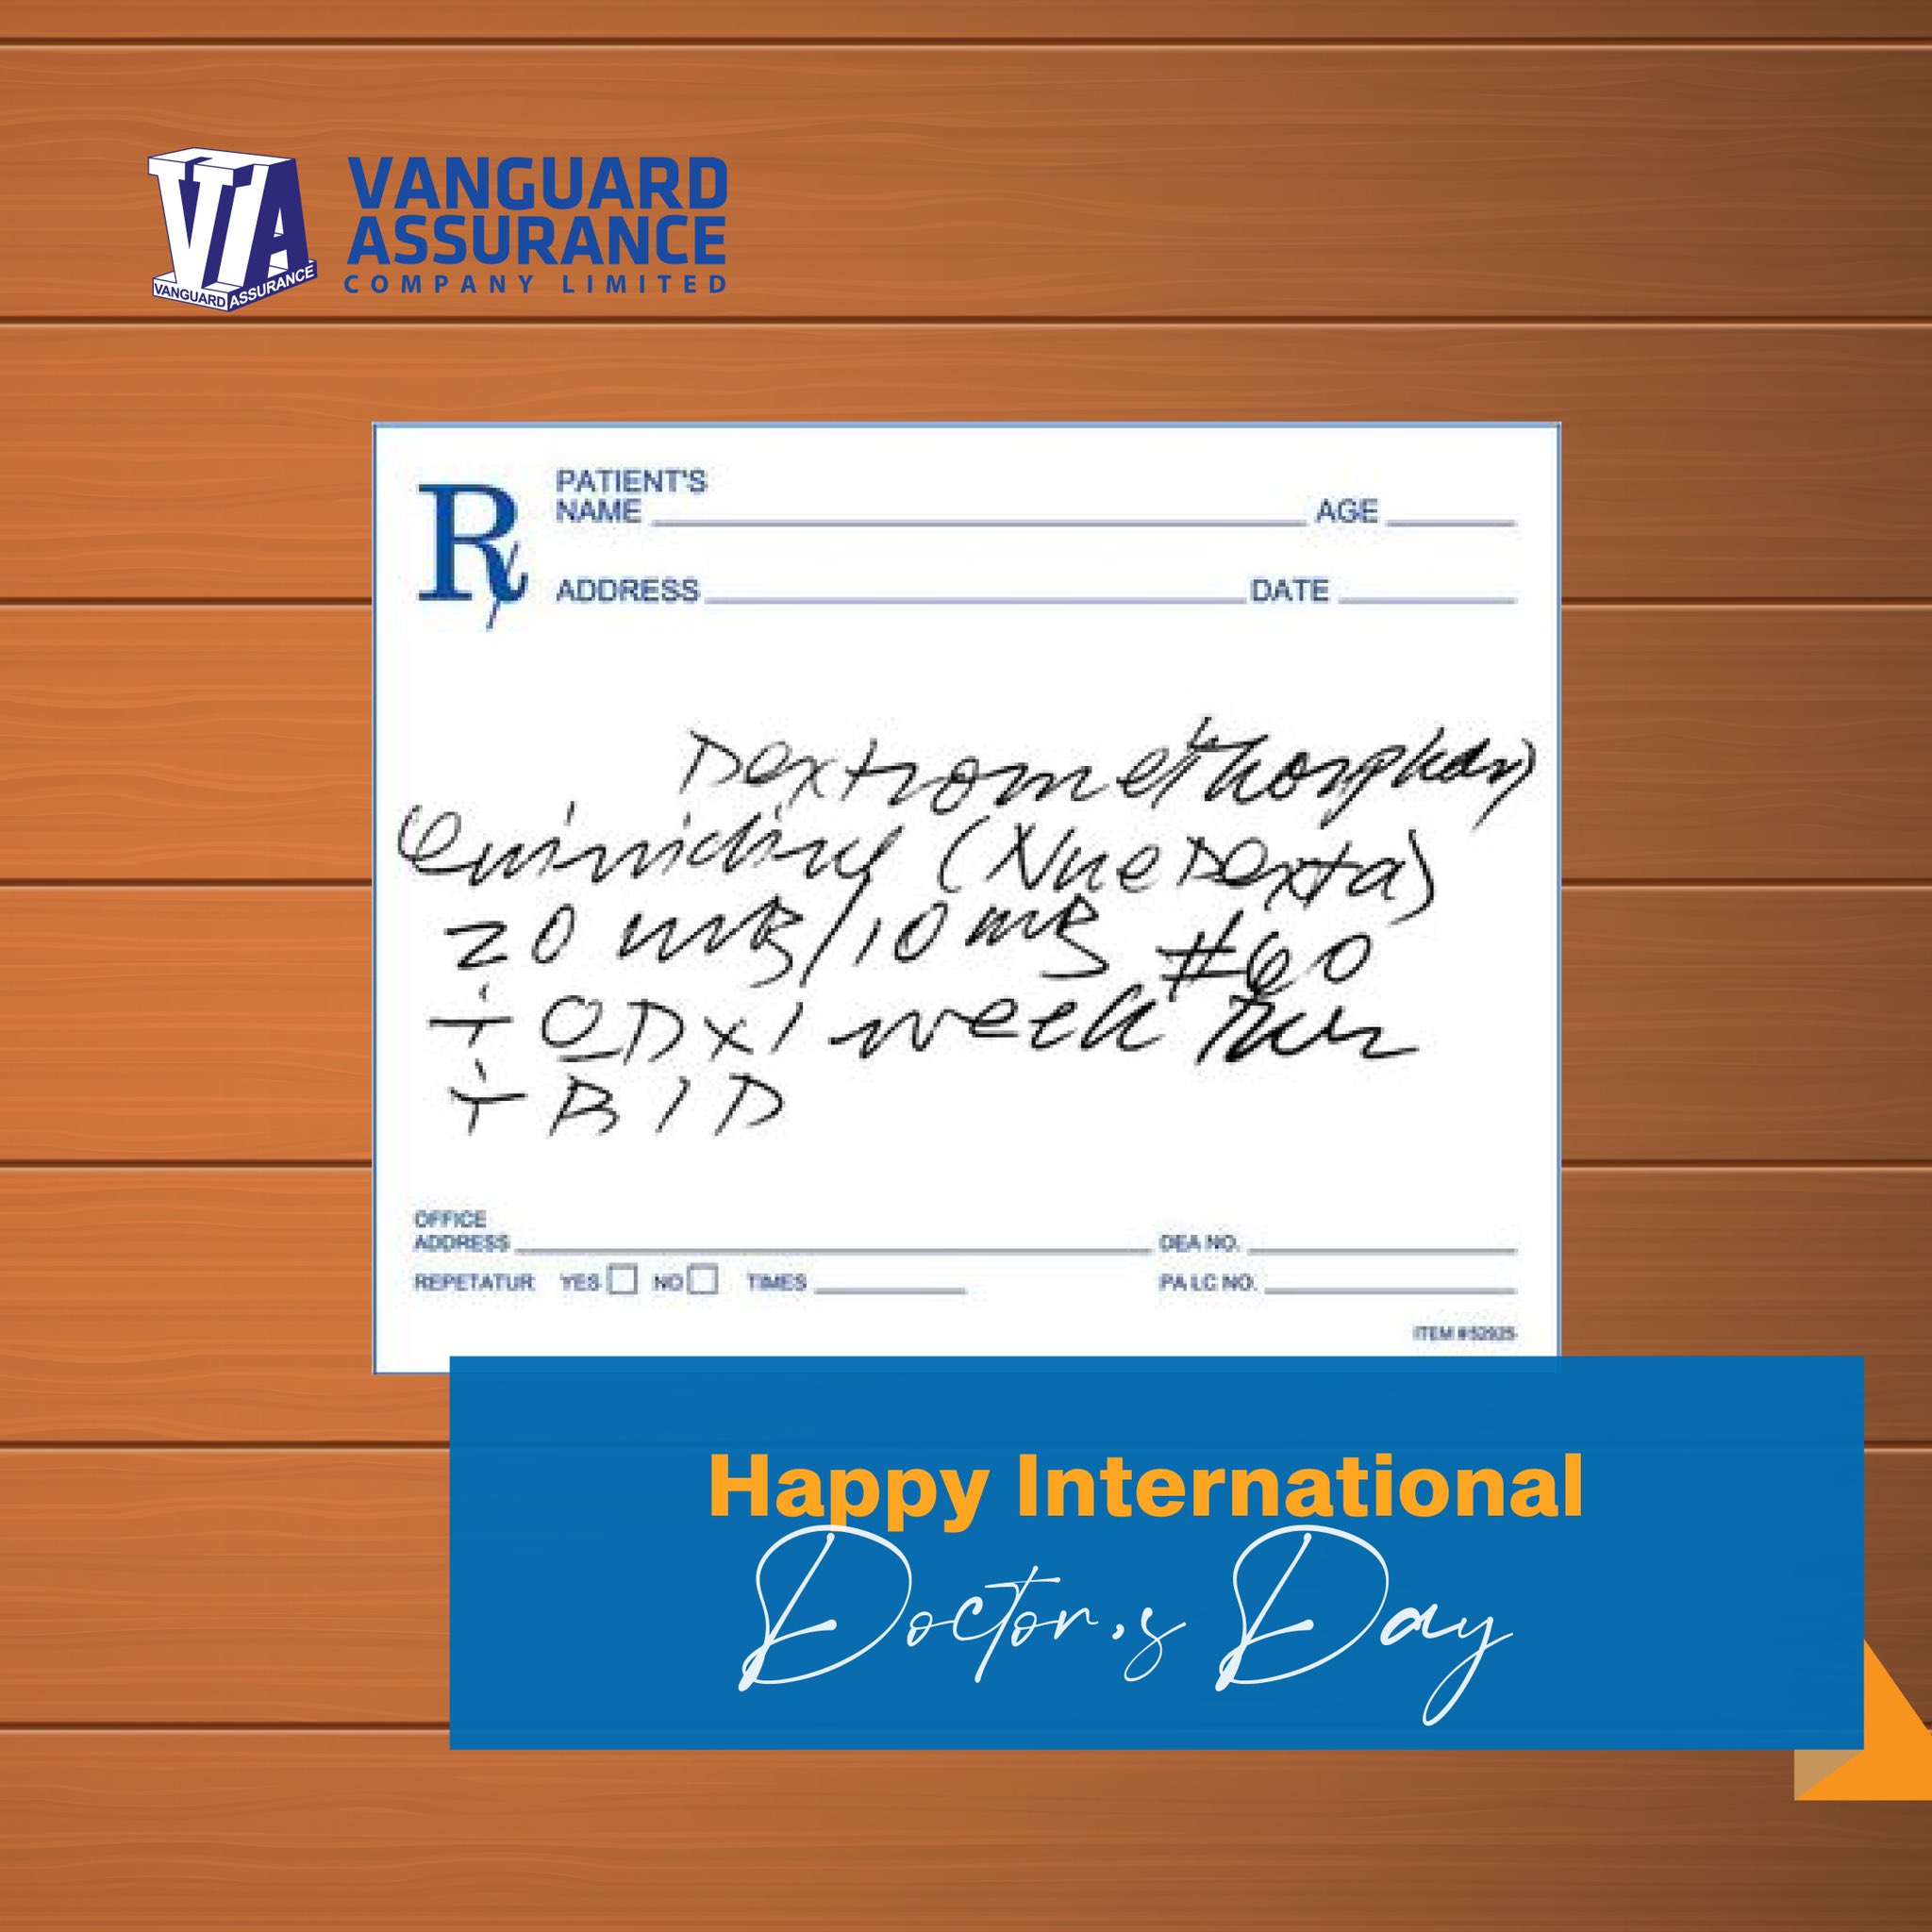 VIA
VANGUARD ASSURANCE
VANGUARD
ASSURANCE
COMPANY LIMITED
Rx
PATIENT'S
NAME AGE
ADDRESS DATE
Dextromethorphan
Quinidine (NueDexta)
20 mg/10 mg #60
i OD x 1 week then
i BID
OFFICE
ADDRESS DEA NO.
REPETATUR YES NO TIMES PA LC NO.
ITEM #52925
Happy International
Doctor's Day